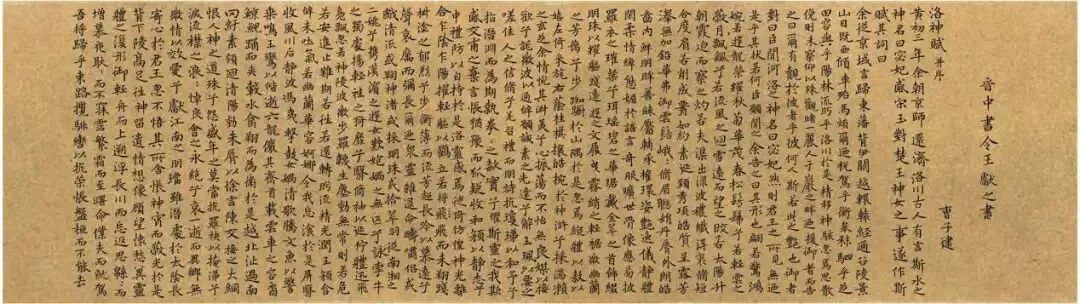 晉中書令王獻之書
曹子建
洛神賦 并序
黃初三年余朝京師還濟洛川古人有言斯水之
神名曰宓妃感宋玉對楚王神女之事遂作斯
賦其詞曰
余從京域言歸東藩背伊闕越轘轅經通谷陵景
山日既西傾車殆馬煩爾迺稅駕乎衡皋秣駟乎芝
田容與乎陽林流眄乎洛川於是精移神駭忽焉思散
俯則未察仰以殊觀睹一麗人于巖之畔迺援御者而告
之曰爾有覿於彼者乎彼何人斯若此之豔也御者
對曰臣聞河洛之神名曰宓妃然則君王之所見無迺
是乎其狀若何臣願聞之余告之曰其形也翩若驚鴻
婉若遊龍榮耀秋菊華茂春松髣髴兮若輕雲之
蔽月飄颻兮若流風之迴雪遠而望之皎若太陽升
朝霞迫而察之灼若芙渠出淥波穠纖得衷脩短
合度肩若削成腰如約素延頸秀項皓質呈露芳
澤無加鉛華弗御雲髻峨峨脩眉聯娟丹脣外朗
皓齒內鮮明眸善睞靨輔承權瓌姿艷逸儀靜體
閑柔情綽態媚於語言奇服曠世骨像應圖披
羅衣之璀粲兮珥瑤碧之華琚戴金翠之首飾綴
明珠以耀軀踐遠遊之文履曳霧綃之輕裾微幽蘭
之芳藹兮步踟躕於山隅於是忽焉縱體以遨以
嬉左倚采旄右蔭桂旗攘皓腕於神滸兮採湍瀨
之玄芝余情悅其淑美兮心振蕩而不怡無良媒以接
懽兮託微波以通辭願誠素之先達兮解玉珮以要之
嗟佳人之信脩兮羌習禮而明詩抗瓊珶以和予兮
指潛淵而為期執拳拳之款實兮懼斯靈之我欺
感交甫之棄言悵猶豫而狐疑收和顏以靜志兮
申禮防以自持於是洛靈感焉徙倚彷徨神光離
合乍陰乍陽擢輕軀以鶴立若將飛而未翔踐
椒塗之郁烈兮步衡薄而流芳超長吟以慕遠兮
聲哀厲而彌長爾迺眾靈雜遝命儔嘯侶或
戲清流或翔神渚或採明珠或拾翠羽從南湘之
二妃兮攜漢濱之遊女歎匏媧之無匹兮詠牽牛
之獨處揚輕袿之猗靡兮翳脩袖以延佇體迅飛
鳧飄忽若神陵波微步羅襪生塵動無常則若危
若安進止難期若往若還轉眄流精光潤玉顏含辭
未吐氣若幽蘭華容婀娜令我忘湌於是屏翳
收風川后靜波馮夷擊鼓女媧清歌騰文魚以警
乘鳴玉鸞以偕逝六龍儼其齊首載雲車之容裔
鯨鯢踊而夾轂水禽翔而為衛於是越北沚過南
岡紆素領迴清陽動朱脣以徐言陳交接之大綱
恨人神之道殊兮怨盛年之莫當抗羅袂以掩涕兮
淚流襟之浪浪悼良會之永絕兮哀一逝而異鄉無
微情以效愛兮獻江南之明璫雖潛處於太陰長
寄心於君王忽不悟其所舍悵神宵而蔽光於是
背下陵高足往神留遺情想像顧望懷愁冀靈
體之復形御輕舟而上溯浮長川而忘返思緜緜而
增慕夜耿耿而不寐霑繁霜而至曙命僕夫而就駕
吾將歸乎東路攬騑轡以抗策悵盤桓而不能去